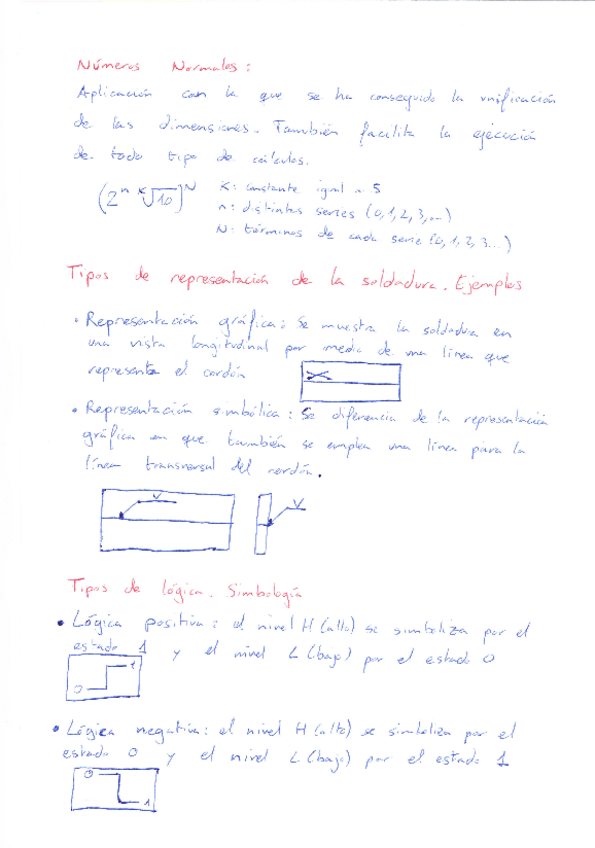 Números Normales:
Aplicación con la que se ha conseguido la unificación
de las dimensiones. También facilita la ejecución
de todo tipo de cálculos.
(2ⁿ ᴷ√10)ᴺ K: constante igual a 5
n: distintas series (0,1,2,3,...)
N: términos de cada serie (0,1,2,3...)
Tipos de representación de la soldadura. Ejemplos
• Representación gráfica: Se muestra la soldadura en
una vista longitudinal por medio de una línea que
representa el cordón
• Representación simbólica: Se diferencia de la representación
gráfica en que también se emplea una línea para la
línea transversal del cordón.
Tipos de lógica. Simbología
• Lógica positiva: el nivel H (alto) se simboliza por el
estado 1 y el nivel L (bajo) por el estado 0
0 1
• Lógica negativa: el nivel H (alto) se simboliza por el
estado 0 y el nivel L (bajo) por el estado 1
0 1